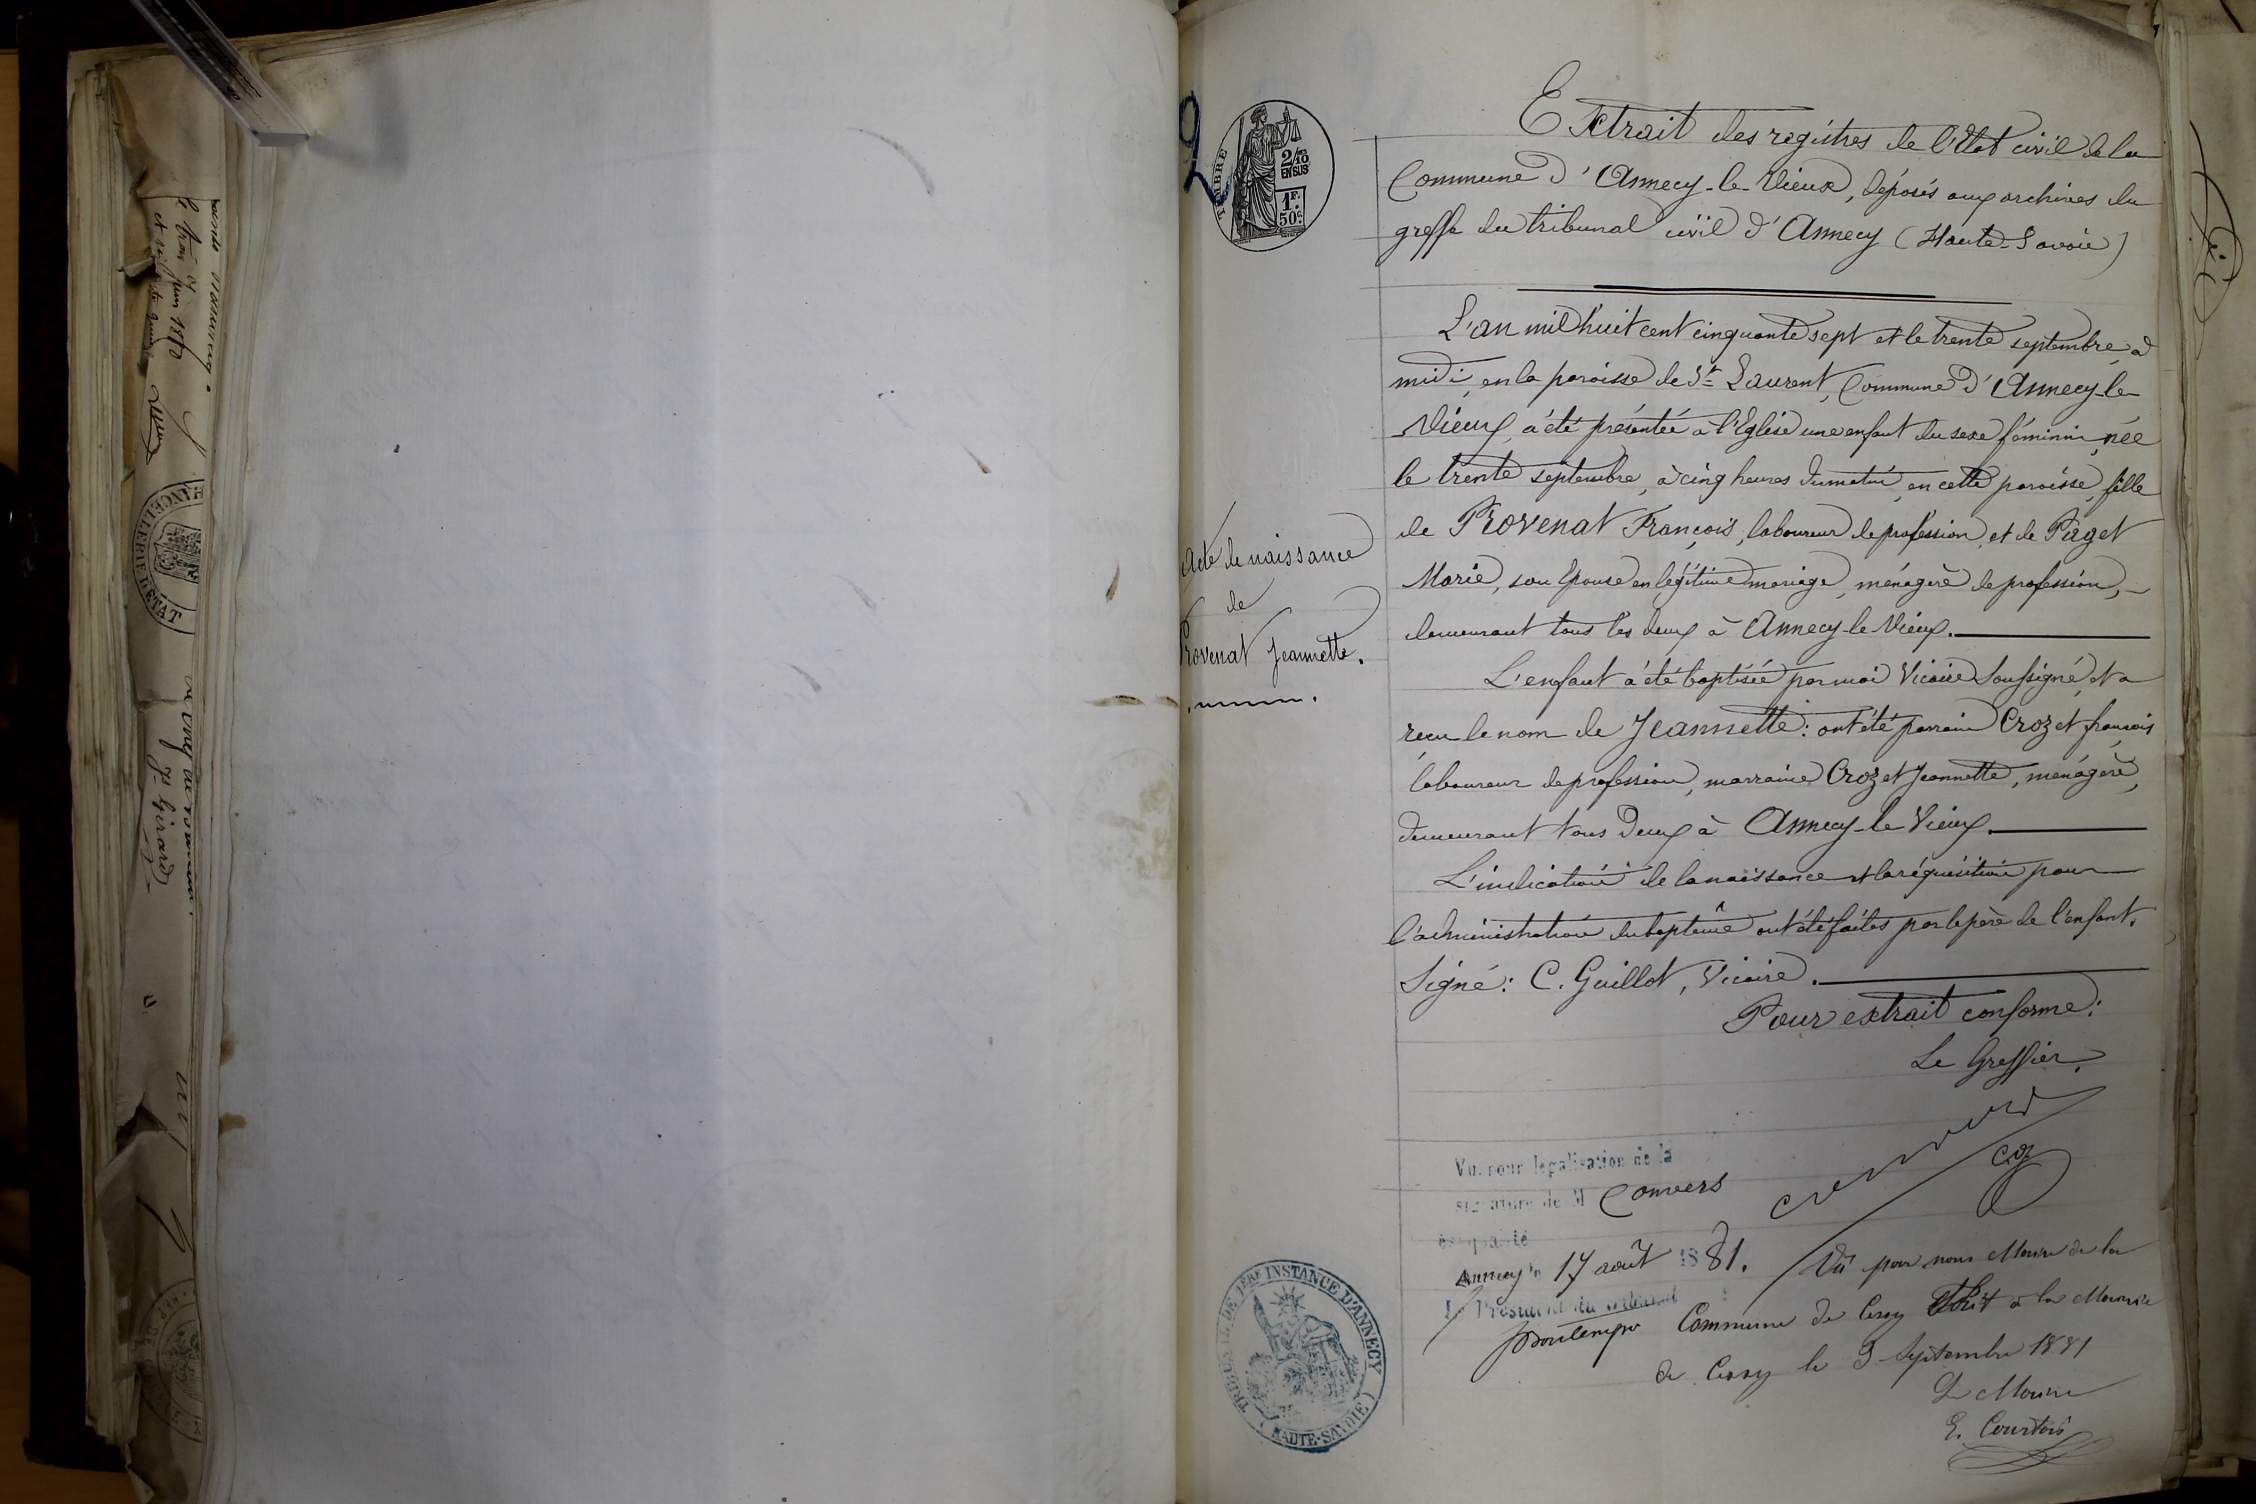 2
TIMBRE
2/10
EN SUS
1F.
50c
Extrait des registres de l'Etat civil de la
Commune d'Annecy-le-Vieux, déposés aux archives du
greffe du tribunal civil d'Annecy (Haute-Savoie)
L'an mil huit cent cinquante sept et le trente septembre à
midi, en la paroisse de St Laurent, Commune d'Annecy-le-
Vieux, a été présentée à l'Eglise une enfant du sexe féminin, née
le trente septembre, à cinq heures du matin, en cette paroisse, fille
de Provenat François, laboureur de profession, et de Paget
Marie, son épouse en légitime mariage, ménagère de profession,
demeurant tous les deux à Annecy-le-Vieux.
Acte de naissance
de
Provenat Jeannette.
L'enfant a été baptisée par moi Vicaire soussigné, et a
reçu le nom de Jeannette: ont été parrain Crozet françois
laboureur de profession, marraine Crozet Jeannette, ménagère,
demeurant tous Deux à Annecy-le Vieux.
L'indication de la naissance et la réquisition pour
l'administration du baptême ont été faites par le père de l'enfant.
Signé: C. Guillot, Vicaire.
Pour extrait conforme:
Le Greffier,
Vu pour légalisation de la
signature de M Convers
Annecy le 17 août 1881.
Le Président du tribunal
Vû par nous Maire de la
Commune de à la Mairie
de le 3 Septembre 1881
Le Maire
E. Courtois
TRIBUNAL DE 1ERE INSTANCE D'ANNECY
(HAUTE-SAVOIE)
CHANCELLERIE D'ETAT